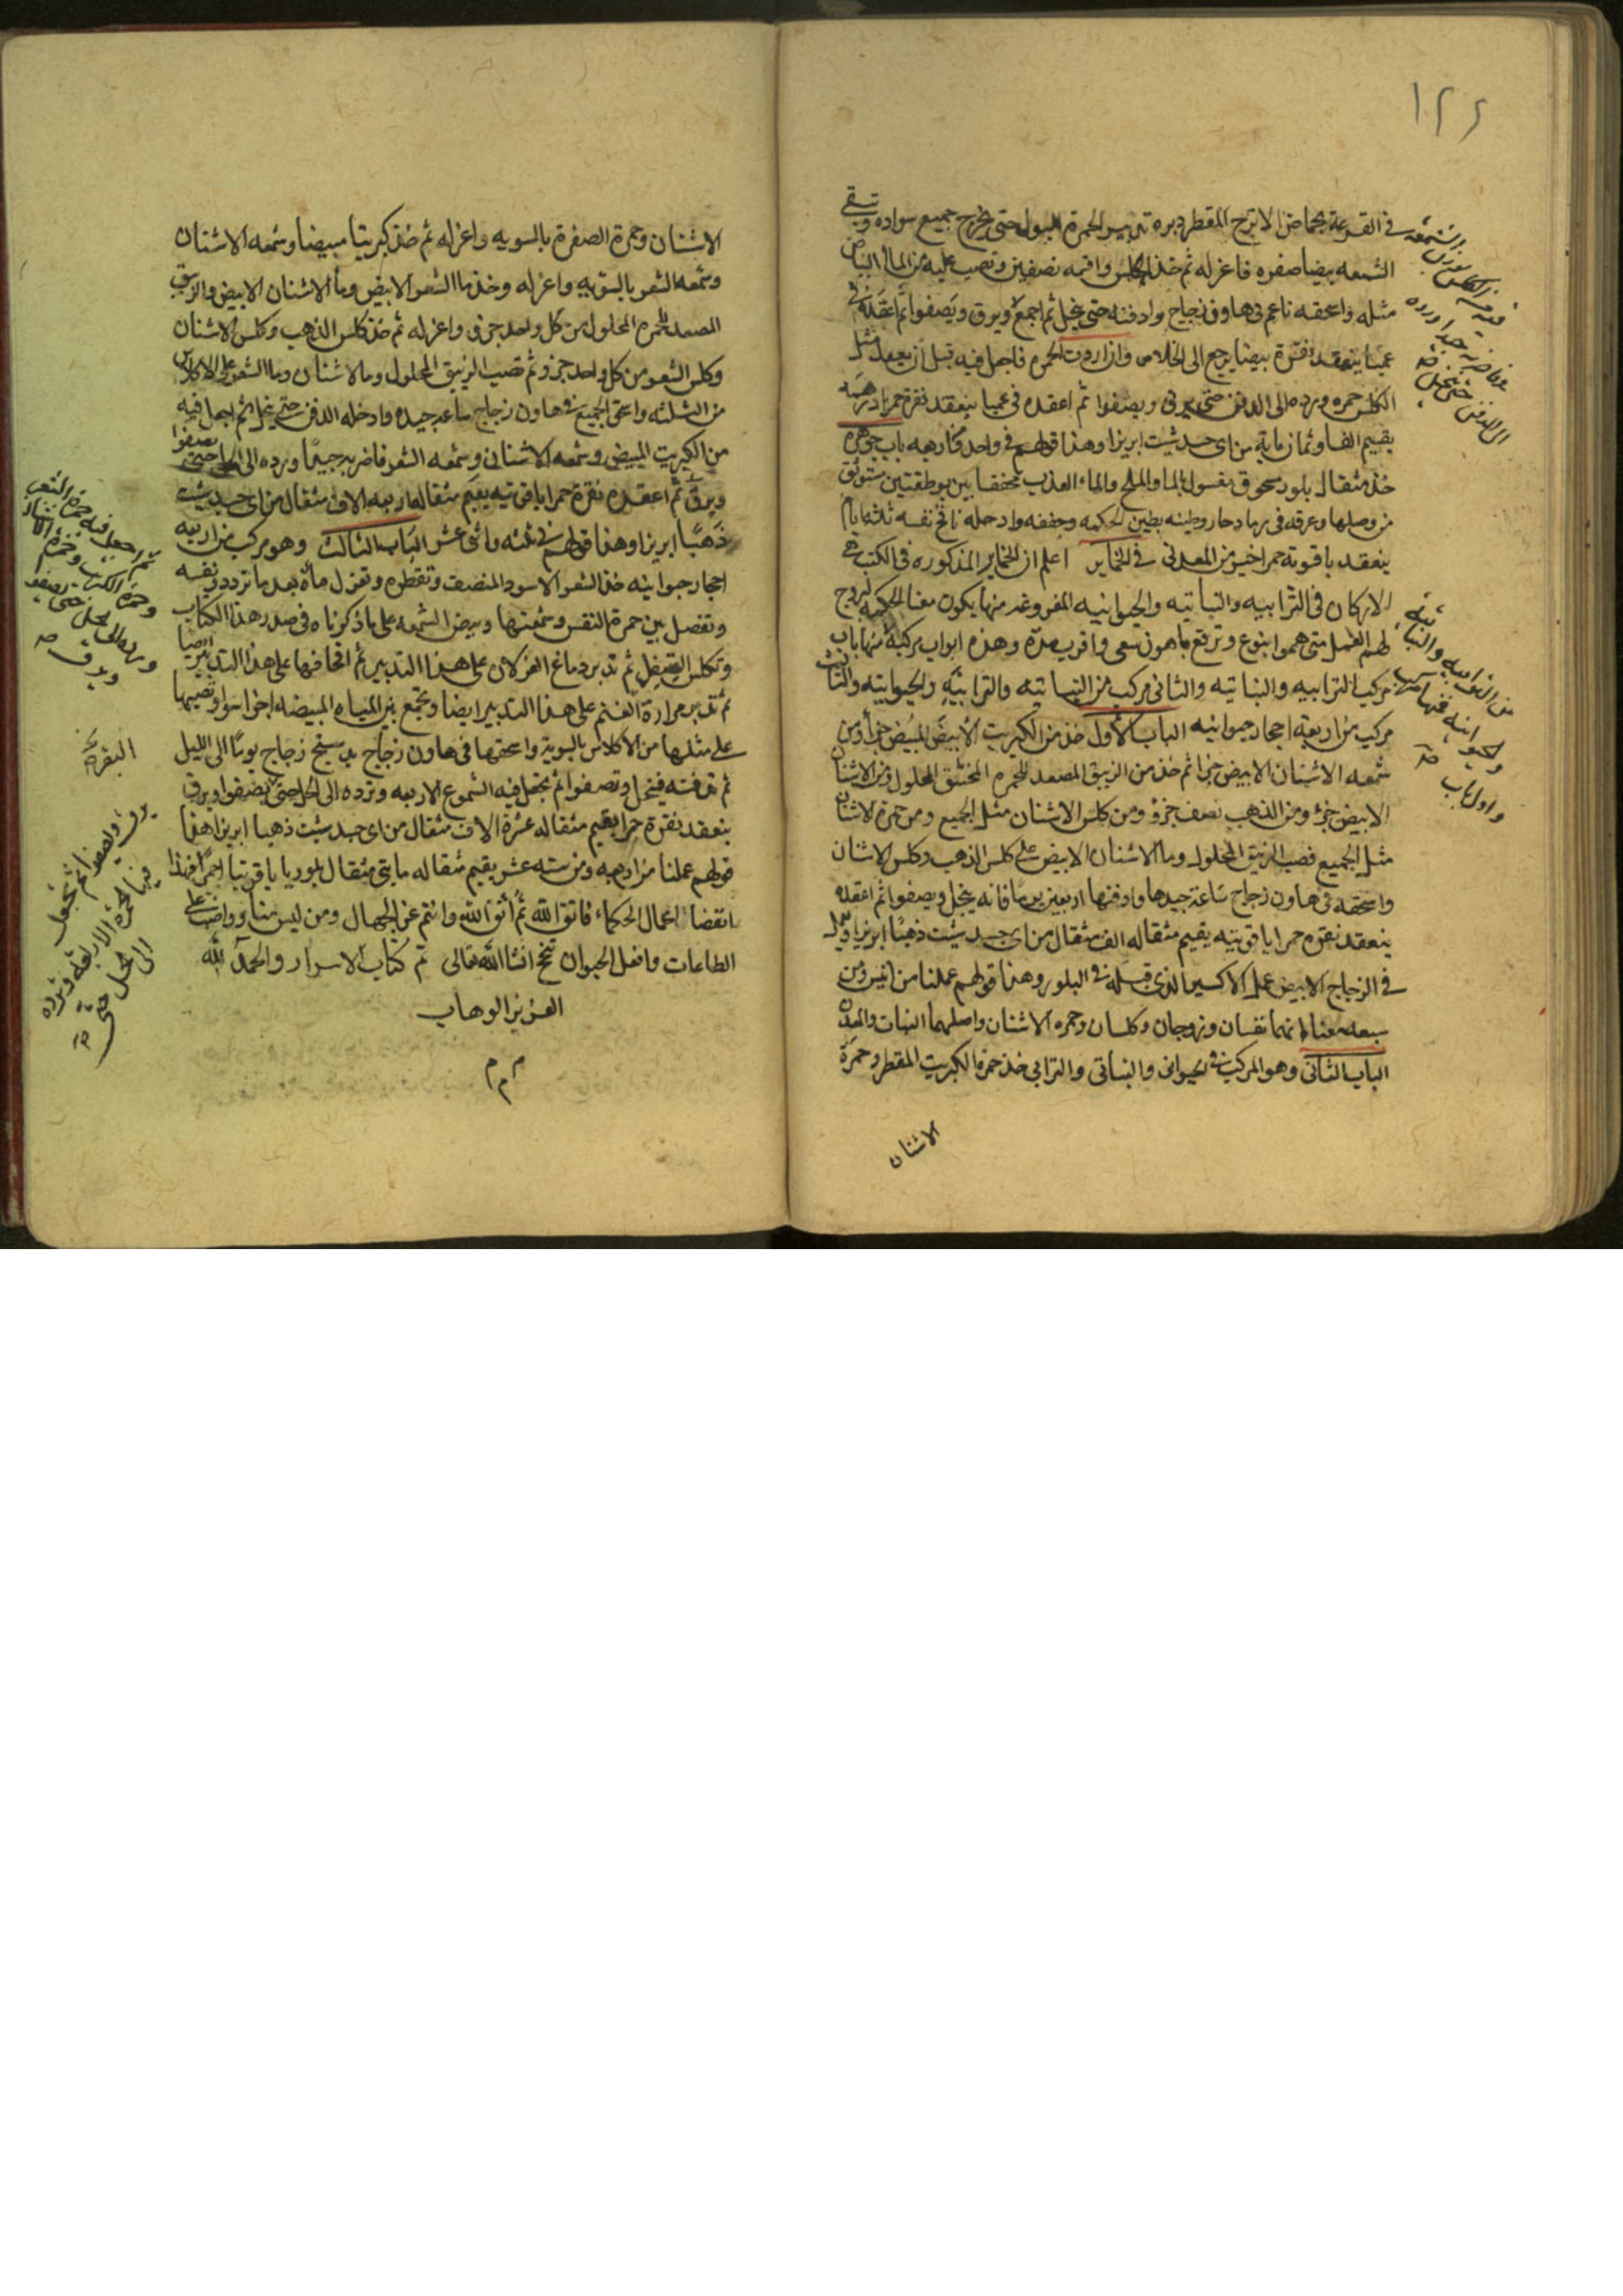 ١٢٤
في القرعة بحماض الاترج المقطر دبره تدبير الحمرة بالبول حتى يخرج جميع سواده وتبقى
الشمعه بيضا صفره فاعزله ثم خذ الكلس واقسمه نصفين وتصب عليه من الما البياض
مثله واسحقه ناعم في هاون زجاج وادفنه حتى ينحل ثم اجمع ويرق ويصفوا ثم اعقده في
عميا ينعقد نقرة بيضا يرجع الى الخلاص وان اردت الحمره فاجعل فيه قبل ان يعقد مثل
الكلس حمره ورده الى الدفن حتى يرق ويصفوا ثم اعقده في عميا ينعقد نقرة حمرا درهمه
يقيم الفا وثمان ماية من اي جسد شيت ابريزا وهذا قولهم في واحد واربعه باب جوهره
خذ مثقال بلور مسحوق مغسول بالما والملح والماء العذب مجففا بين بوطقتين مستوثق
من وصلها وعرقه في رماد حار وطينه بطين الحكمه وجففه وادخله نافخ نفسه ثلثة ايام
ينعقد ياقوتة حمرا خير من المعدني في الخماير اعلم ان الخماير المذكوره في الكتب هي
الاركان في الترابيه والنباتيه والحيوانيه المفروغ منها يكون معنا الحكمه لبروج
لهم العمل متى هموا بنوع وترفع باهون سعى واقرب مدة وهذه ابواب مركبة منها باب
مركب الترابيه والنباتيه والثاني مركب من النباتيه والترابيه والحيوانيه والثالث
مركب من اربعة احجار حيوانيه الباب الاول خذ من الكبريت الابيض المبيض جزأ ومن
شمعه الاشنان الابيض جزا ثم خذ من الزيبق المصعد للحمره المحلول ومن الاشنان
الابيض جزؤ ومن الذهب نصف جزؤ ومن كلس الاشنان مثل الجميع ومن حمرة الاشنان
مثل الجميع فصب الزيبق المحلول وما الاشنان الابيض على كلس الذهب وكلس الاشنان
واسحقه في هاون زجاج ساعة جيدها وادفنها اربعين يوما فانه ينحل ويصفوا ثم اعقده
ينعقد نقره حمرا ياقوتيه يقيم مثقاله الف مثقال من اي جسد شيت ذهبا ابريزا
في الزجاج الابيض عمل الاكسير الذي قبله في البلور وهذا قولهم عملنا من اثنين ومن
سبعه معناه انهما نفسان وزوجان وكلسان وحمره الاشنان واصلهما النبات والمعدن
الباب الثاني وهو المركب من الحيواني والنباتي والترابي خذ حمرة الكبريت المقطر وحمرة
الاشنان
من الترابيه والنباتيه
والحيوانيه
واول باب
الاشنان وحمرة الصفرة بالسويه واعزله ثم خذ كبريتا مبيضا وشمعه الاشنان
وشمعه الشعر بالسويه واعزله وخذ ما الشعر الابيض وما الاشنان الابيض والزيبق
المصعد للحمره المحلول من كل واحد جزؤ واعزله ثم خذ كلس الذهب وكلس الاشنان
وكلس الشعر من كل واحد جزؤ ثم تصب الزيبق المحلول وما الاشنان وما الشعر على الاكلاس
من الثلثه واسحق الجميع في هاون زجاج ساعه جيده وادخله الدفن حتى ينحل ثم اجعل فيه
من الكبريت المبيض وشمعه الاشنان وشمعه الشعر فاضربه جيدا ورده الى الحل حتى يصفوا
ويرق ثم اعقده نقرة حمرا ياقوتيه يقيم مثقاله اربعه الاف مثقال من اي جسد شيت
ذهبا ابريزا وهذا قولهم في ثلثه واثنى عشر الباب الثالث وهو مركب من اربعه
احجار حيوانيه خذ الشعر الاسود المنصف وتقطره وتعزل ماه بعد ما تردد نفسه
وتفصل بين حمرة النفس وشمعتها وبيض الشمعه على ما ذكرناه في صدر هذا الكتاب
وتكلس التفل ثم تدبر دماغ الغزلان على هذا التدبير ثم على هذا التدبير ايضا
ثم تدبر مرارة الغنم على هذا التدبير ايضا وتجمع بين المياه المبيضه اجزا سوا وتصبها
على مثلها من الاكلاس بالسوية واسحقها في هاون زجاج بدستج زجاج يوما الى الليل
ثم تدفنه فينحل وتصفوا ثم تجعل فيه الشموع الاربعه وترده الى الحل حتى يصفوا ويرق
ينعقد نقرة حمرا يقيم مثقاله عشرة الاف مثقال من اي جسد شيت ذهبا ابريزا هذا
قولهم عملنا من اربعه ومن سته عشر يقيم مثقاله مايتي مثقال بلوريا ياقوتيا احمرا فهذا
انقضا اعمال الحكماء فاتق الله ثم اتق الله وانتم عن الجهال ومن ليس منا وواضب على
الطاعات وافعل الخير ان تنجح انشا الله تعالى تم كتاب الاسرار والحمد لله
العزيز الوهاب
م م م
ثم اجعل فيه حمرة الشعر
وحمرة الكبريت وحمرة الاشنان
ورده الى الحل حتى يصفو
ويرق صح
البقر صح
يرق ويصفوا ثم تجعل
فيها الحمرة الاربعة وترده
الى الحل حتى صح